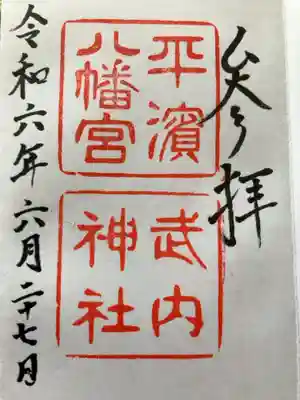 奉拝
平濱
八幡宮
武内
神社
令和六年六月二十七日